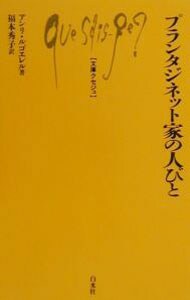 アンリ・ルゴエレル著
福本秀子訳
que sais-je?
[文庫クセジュ]
プランタジネット家の人びと
白水社